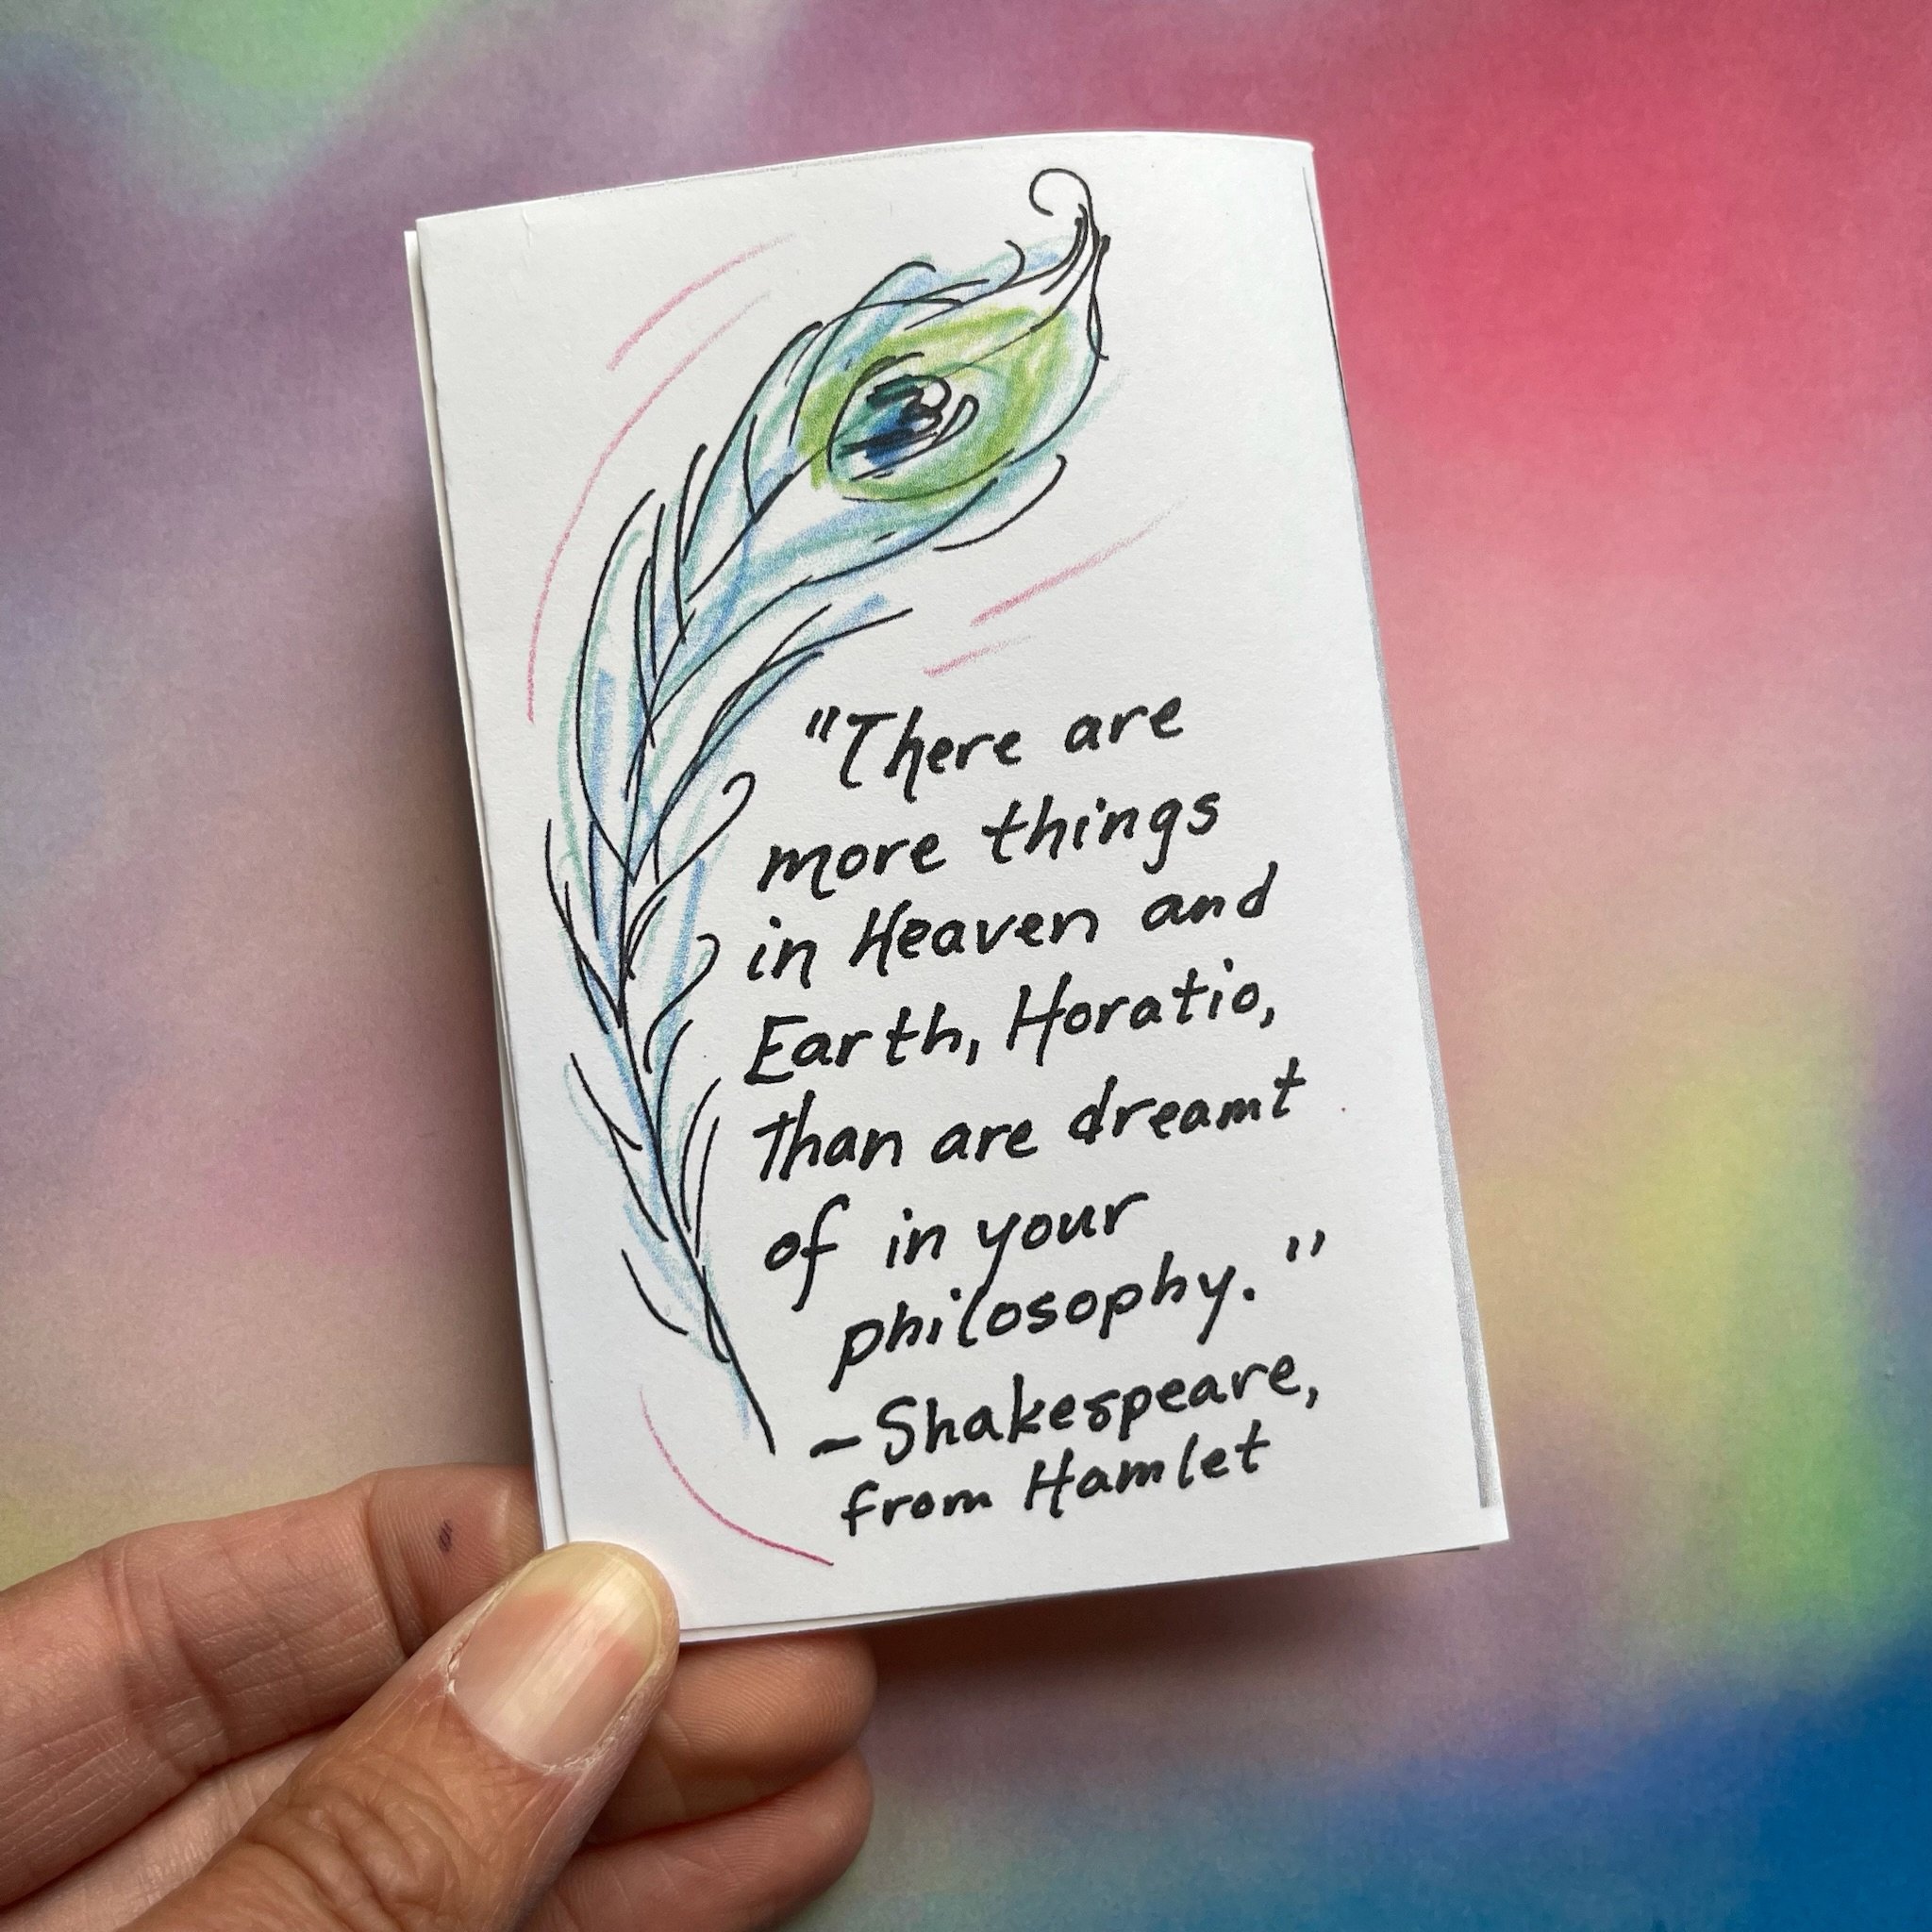 "There are
more things
in Heaven and
Earth, Horatio,
than are dreamt
of in your
philosophy."
–Shakespeare,
from Hamlet